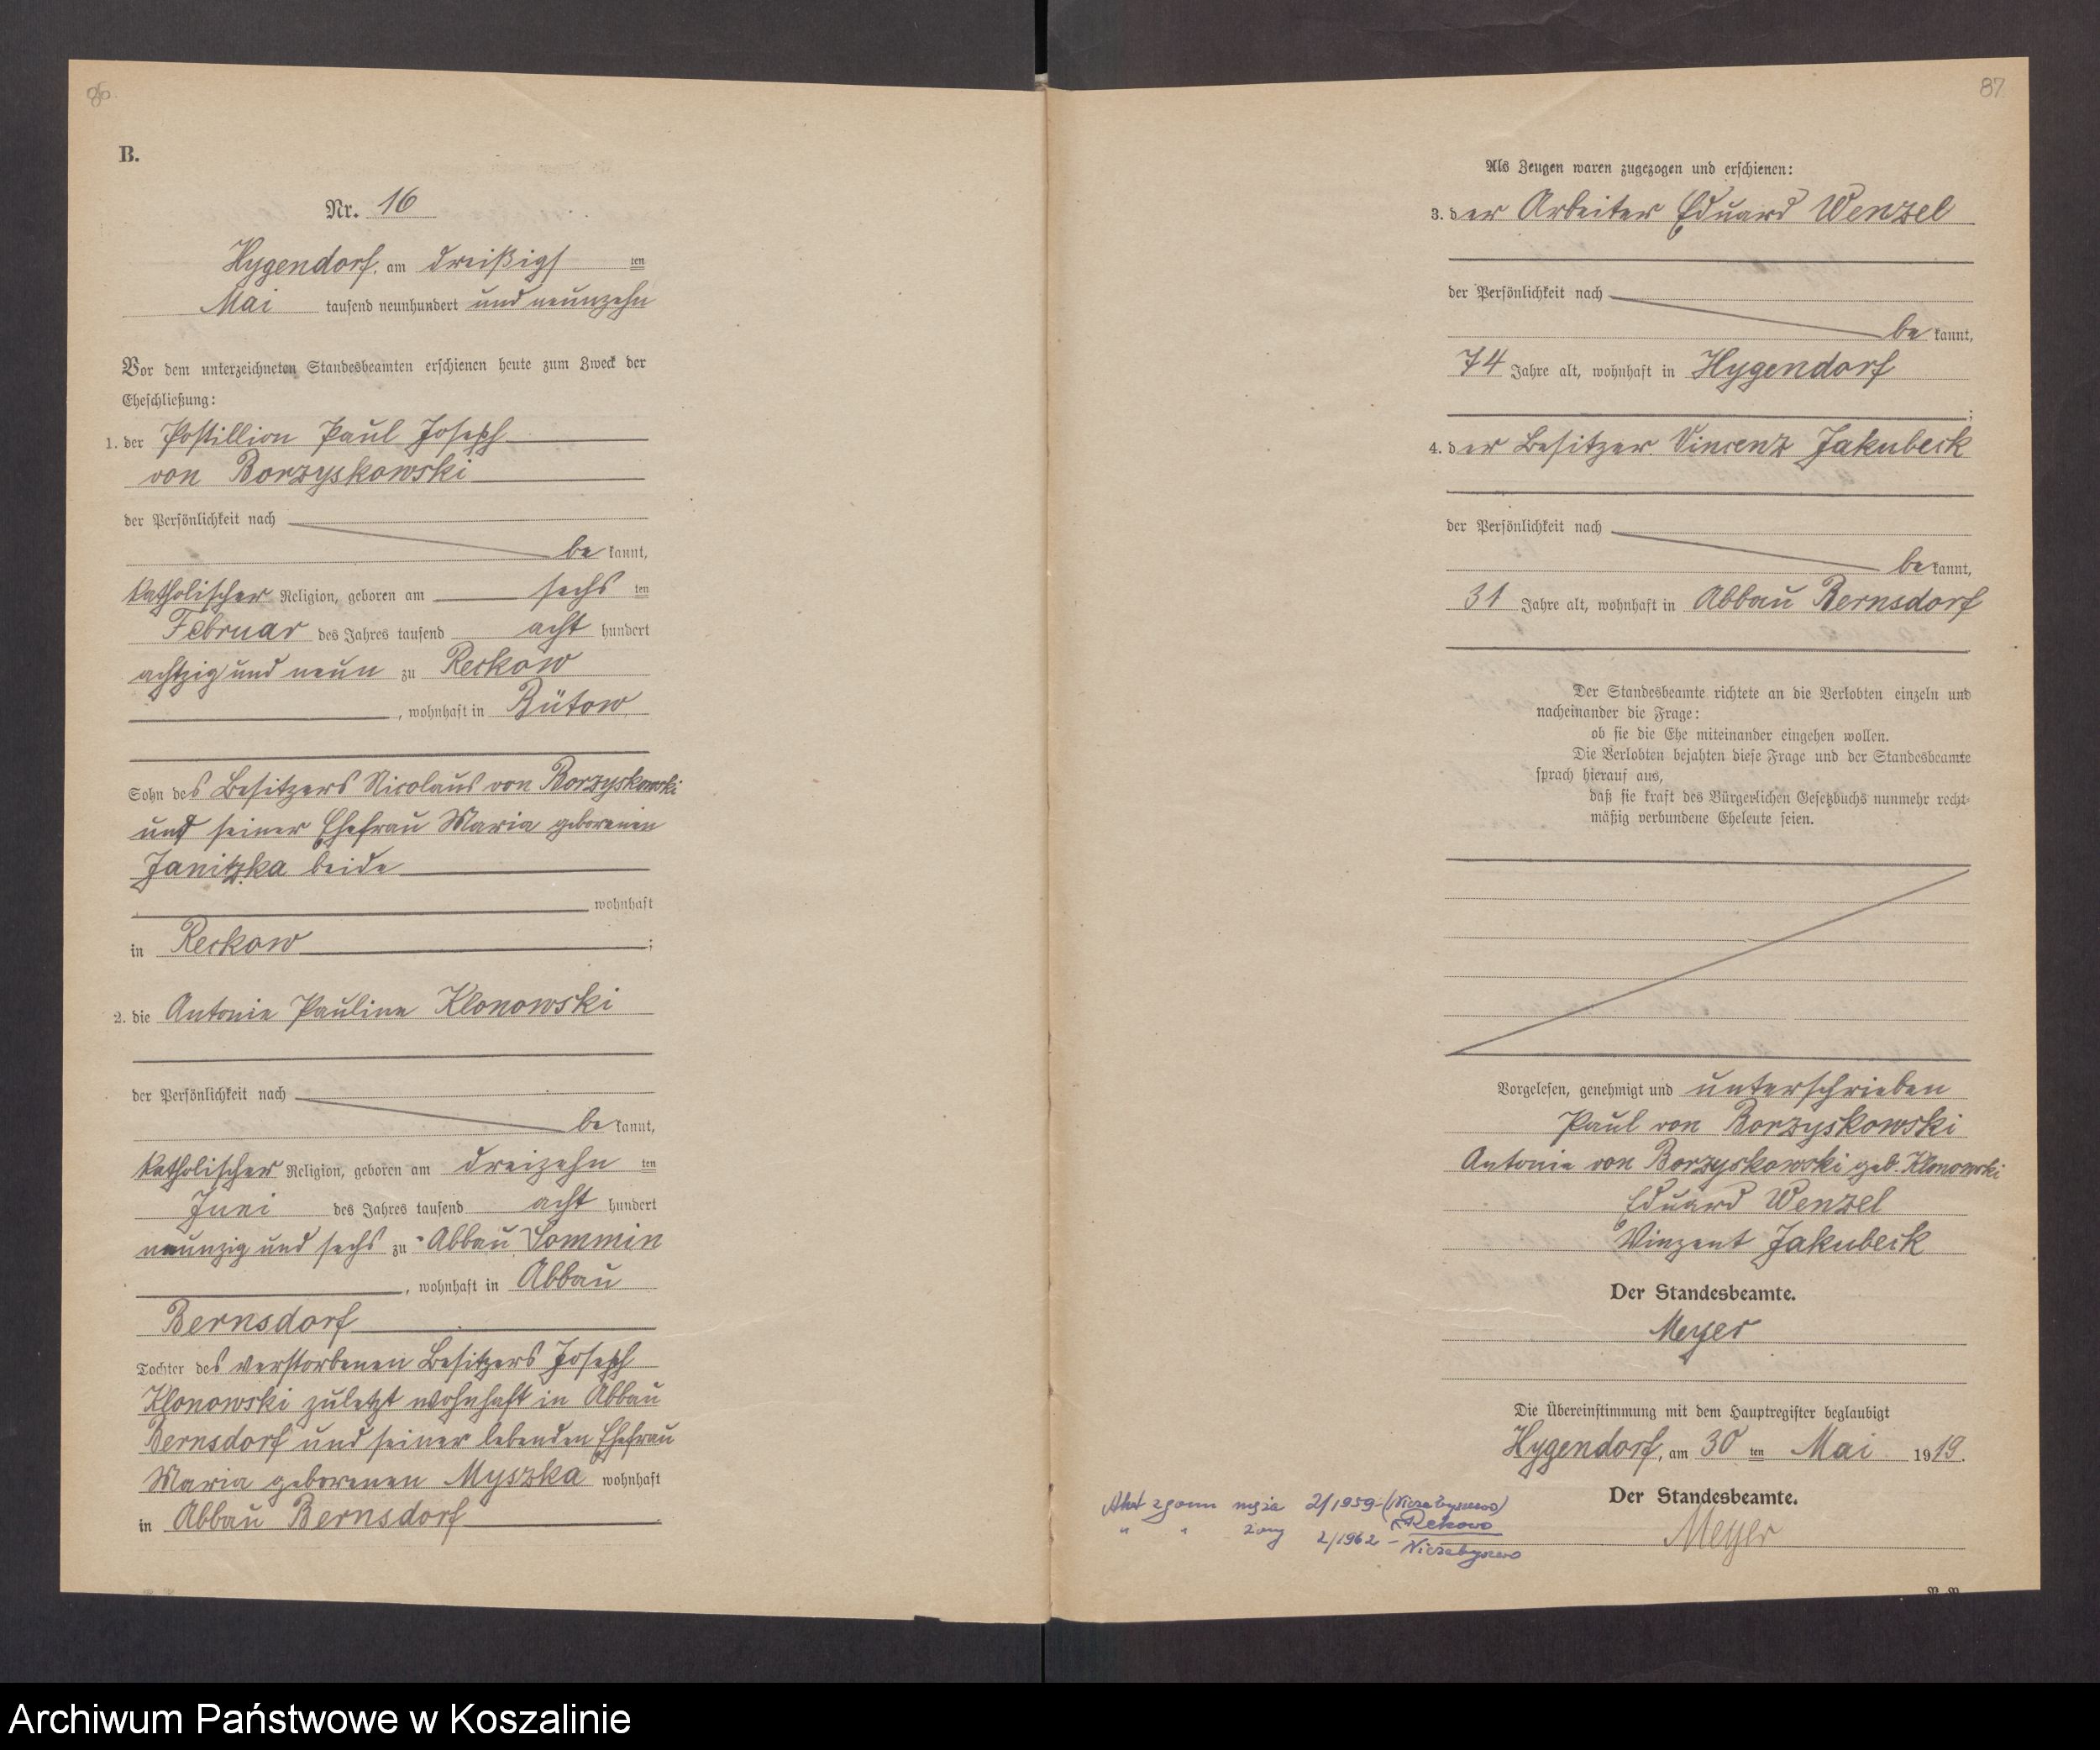 86.
B.
Nr. 16
Hygendorf, am dreißigs ten
Mai tausend neunhundert und neunzehn
Vor dem unterzeichneten Standesbeamten erschienen heute zum Zweck der
Eheschließung:
1. der Postillion Paul Joseph
von Borzyskowski
der Persönlichkeit nach
be kannt,
katholischer Religion, geboren am sechs ten
Februar des Jahres tausend acht hundert
achtzig und neun zu Reckow
, wohnhaft in Bütow
Sohn des Besitzers Nicolaus von Borzyskowski
und seiner Ehefrau Maria geborenen
Janitzka beide
wohnhaft
in Reckow ;
2. die Antonie Pauline Klonowski
der Persönlichkeit nach
be kannt,
katholischer Religion, geboren am dreizehn ten
Juni des Jahres tausend acht hundert
neunzig und sechs zu Abbau Sommin
, wohnhaft in Abbau
Bernsdorf
Tochter des verstorbenen Besitzers Joseph
Klonowski zuletzt wohnhaft in Abbau
Bernsdorf und seiner lebenden Ehefrau
Maria geborenen Myszka wohnhaft
in Abbau Bernsdorf .
87
Als Zeugen waren zugezogen und erschienen:
3. der Arbeiter Eduard Wenzel
der Persönlichkeit nach
be kannt,
74 Jahre alt, wohnhaft in Hygendorf
;
4. der Besitzer Vincenz Jakubeck
der Persönlichkeit nach
be kannt,
31 Jahre alt, wohnhaft in Abbau Bernsdorf
Der Standesbeamte richtete an die Verlobten einzeln und
nacheinander die Frage:
ob sie die Ehe miteinander eingehen wollen.
Die Verlobten bejahten diese Frage und der Standesbeamte
sprach hierauf aus,
daß sie kraft des Bürgerlichen Gesetzbuchs nunmehr recht-
mäßig verbundene Eheleute seien.
Vorgelesen, genehmigt und unterschrieben
Paul von Borzyskowski
Antonie von Borzyskowski geb. Klonowski
Eduard Wenzel
Vinzent Jakubeck
Der Standesbeamte.
Meyer
Die Übereinstimmung mit dem Hauptregister beglaubigt
Hygendorf, am 30 ten Mai 1919.
Der Standesbeamte.
Meyer
Akt zgonu męża 2/1959 - (Niezabyszewo)
Rekowo
" " żony 2/1962 - Niezabyszewo
Archiwum Państwowe w Koszalinie